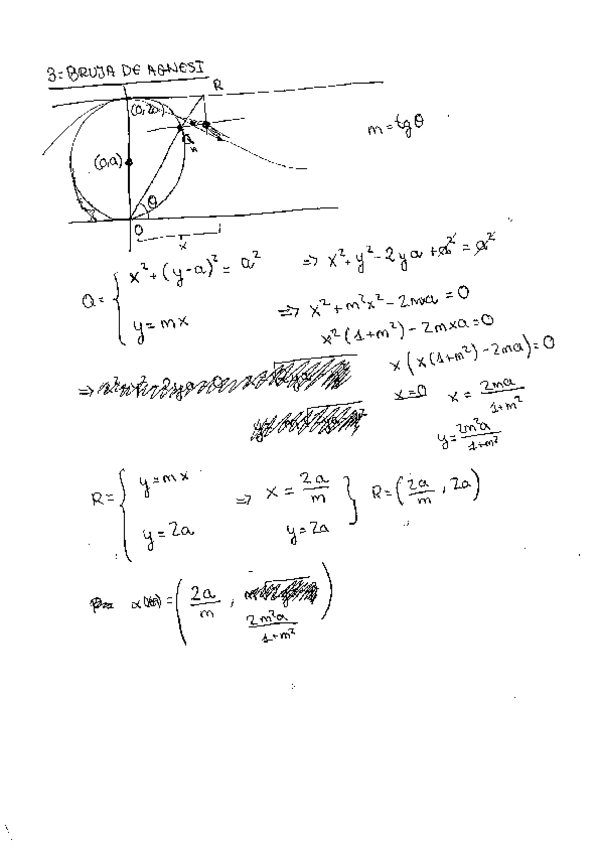 3= BRUJA DE AGNESI
R
(0,2a)
m = tg θ
(0,a)
θ
0
x
Q = { x² + (y-a)² = a² ⇒ x² + y² - 2ya + a² = a²
y = mx ⇒ x² + m²x² - 2mxa = 0
x²(1+m²) - 2mxa = 0
x(x(1+m²) - 2ma) = 0
x=0 x = 2ma/1+m²
y = 2m²a/1+m²
R = { y = mx ⇒ x = 2a/m } R = (2a/m , 2a)
y = 2a y = 2a
α(m) = (2a/m , 2m²a/1+m²)